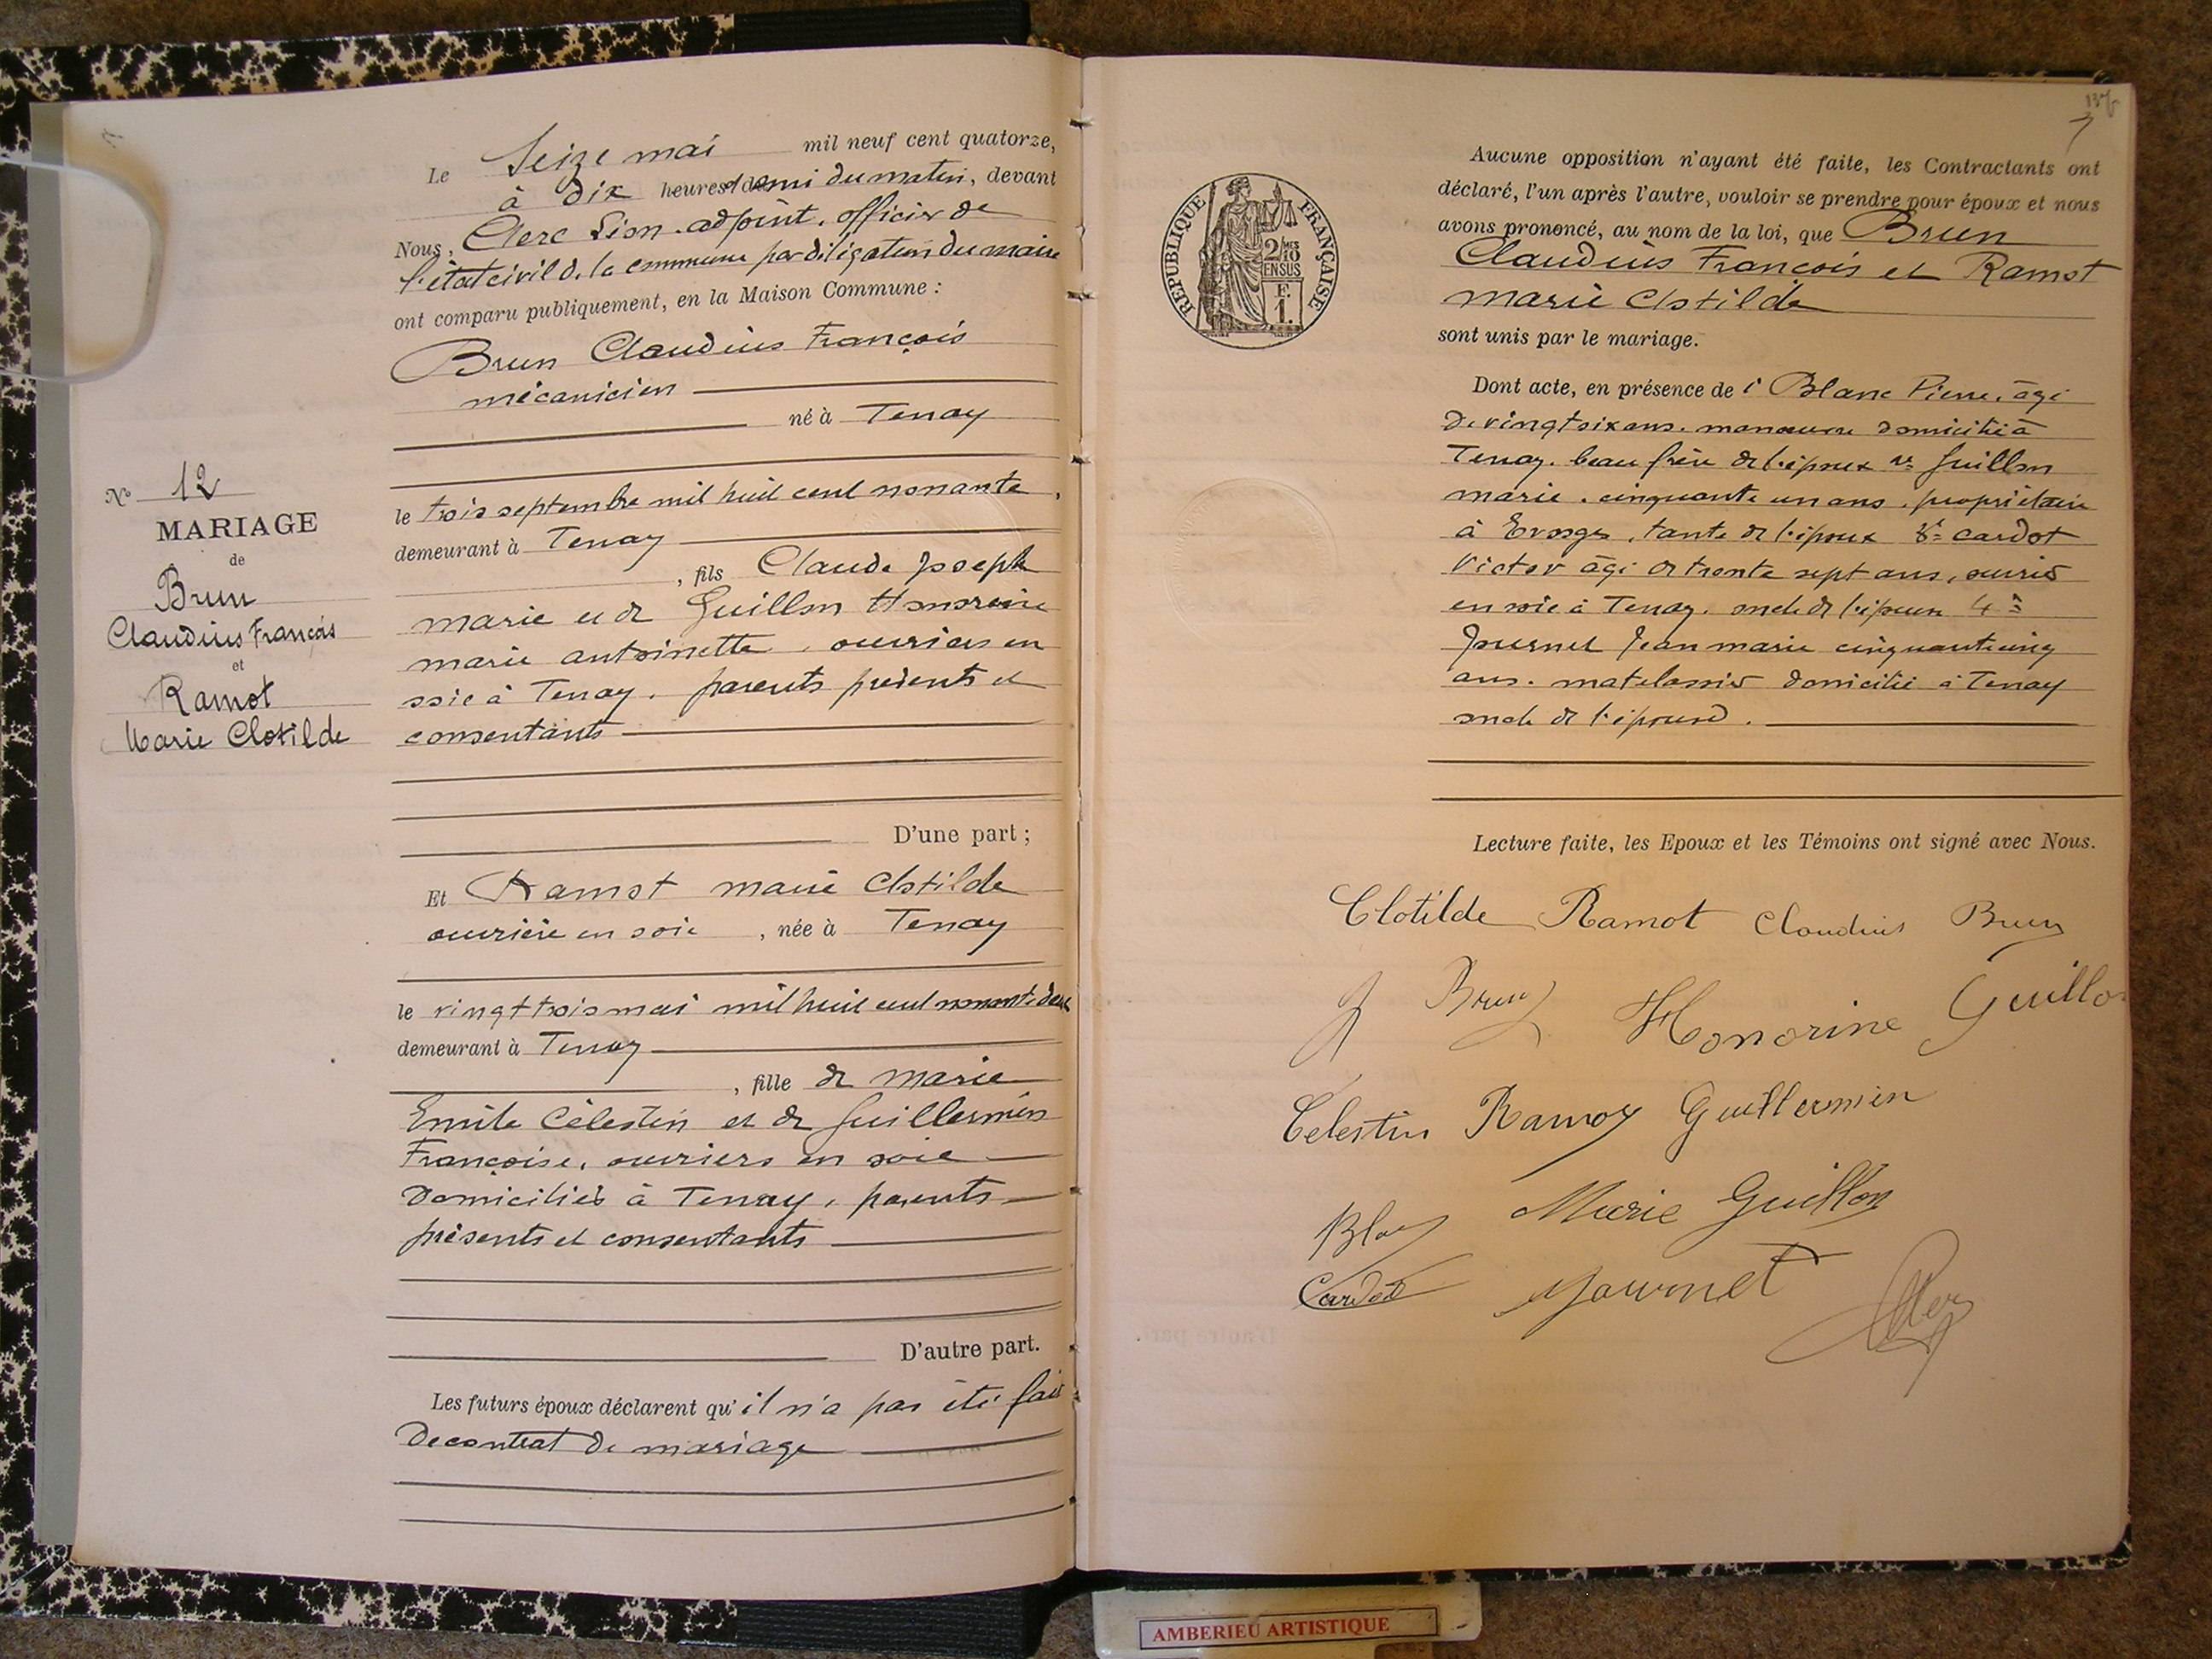 Le Seize mai mil neuf cent quatorze,
à dix heures et demi du matin, devant
Nous, Clerc Léon, adjoint, officier de
l'état civil de la commune par délégation du maire
ont comparu publiquement, en la Maison Commune :
Brun Claudius François
mécanicien
né à Tenay
le trois septembre mil huit cent nonante,
demeurant à Tenay
, fils Claude Joseph
marie et de Guillon Honorine
marie antoinette, ouvriers en
soie à Tenay, parents présents et
consentants
D'une part ;
Et Ramot marie Clotilde
ouvrière en soie, née à Tenay
le vingt trois mai mil huit cent nonante deux
demeurant à Tenay
, fille de marie
Emile Célestin et de Guillermin
Françoise, ouvriers en soie
domiciliés à Tenay, parents
présents et consentants
D'autre part.
Les futurs époux déclarent qu'il n'a pas été fait
de contrat de mariage
No 12
MARIAGE
de
Brun
Claudius François
et
Ramot
Marie Clotilde
7
REPUBLIQUE FRANÇAISE
2/10
EN SUS
F.
1.
Aucune opposition n'ayant été faite, les Contractants ont
déclaré, l'un après l'autre, vouloir se prendre pour époux et nous
avons prononcé, au nom de la loi, que Brun
Claudius François et Ramot
marie Clotilde
sont unis par le mariage.
Dont acte, en présence de 1º Blanc Pierre, âgé
de vingt six ans, manœuvre domicilié à
Tenay, beau frère de l'époux 2º Guillon
marie, cinquante un ans, propriétaire
à Evosges, tante de l'époux 3º Cardot
Victor âgé de trente sept ans, ouvrier
en soie à Tenay, oncle de l'époux 4º
Journet Jean marie cinquante cinq
ans, matelassier domicilié à Tenay
oncle de l'épouse.
Lecture faite, les Epoux et les Témoins ont signé avec Nous.
Clotilde Ramot Claudius Brun
J Brun Honorine Guillon
Celestin Ramot Guillermin
Blanc Marie Guillon
Cardot Journet Clerc
AMBERIEU ARTISTIQUE